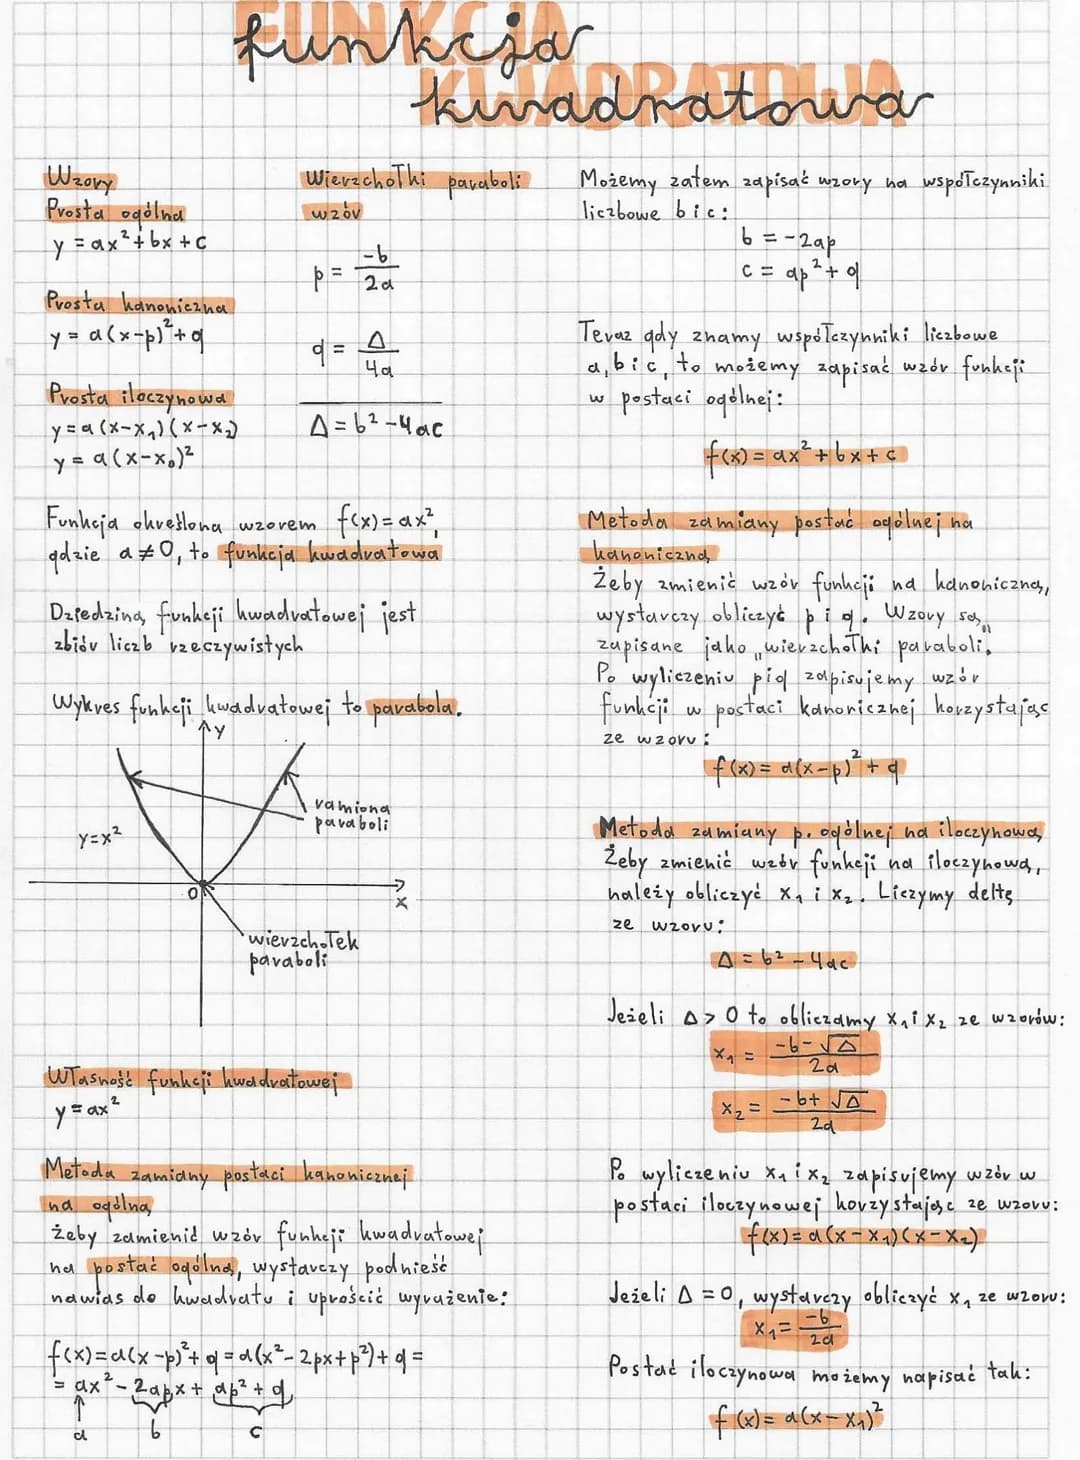 funkcja
kwadratowa
Wzory
Prosta ogólna
y = ax² + bx + c
Prosta kanoniczna
y = a(x-p)² + q
Prosta iloczynowa
y = a(x-x₁)(x-x₂)
y = a(x-x₀)²
Wierzchołki paraboli
wzór
p = -b/2a
q = Δ/4a
Δ = b² - 4ac
Funkcja określona wzorem f(x) = ax²,
gdzie a ≠ 0, to funkcja kwadratowa
Dziedziną funkcji kwadratowej jest
zbiór liczb rzeczywistych
Wykres funkcji kwadratowej to parabola.
y
ramiona
paraboli
y=x²
0
x
wierzchołek
paraboli
Własność funkcji kwadratowej
y = ax²
Metoda zamiany postaci kanonicznej
na ogólną
żeby zamienić wzór funkcji kwadratowej
na postać ogólną, wystarczy podnieść
nawias do kwadratu i uprościć wyrażenie:
f(x) = a(x-p)² + q = a(x² - 2px + p²) + q =
= ax² - 2apx + ap² + q
a b c
Możemy zatem zapisać wzory na współczynniki
liczbowe b i c:
b = -2ap
c = ap² + q
Teraz gdy znamy współczynniki liczbowe
a, b i c, to możemy zapisać wzór funkcji
w postaci ogólnej:
f(x) = ax² + bx + c
Metoda zamiany postać ogólnej na
kanoniczną
Żeby zmienić wzór funkcji na kanoniczną,
wystarczy obliczyć p i q. Wzory są
zapisane jako „wierzchołki paraboli".
Po wyliczeniu p i q zapisujemy wzór
funkcji w postaci kanonicznej korzystając
ze wzoru:
f(x) = a(x-p)² + q
Metoda zamiany p. ogólnej na iloczynową
Żeby zmienić wzór funkcji na iloczynową,
należy obliczyć x₁ i x₂. Liczymy deltę
ze wzoru:
Δ = b² - 4ac
Jeżeli Δ > 0 to obliczamy x₁ i x₂ ze wzorów:
x₁ = -b-√Δ/2a
x₂ = -b+√Δ/2a
Po wyliczeniu x₁ i x₂ zapisujemy wzór w
postaci iloczynowej korzystając ze wzoru:
f(x) = a(x-x₁)(x-x₂)
Jeżeli Δ = 0, wystarczy obliczyć x₁ ze wzoru:
x₁ = -b/2a
Postać iloczynowa możemy napisać tak:
f(x) = a(x-x₁)²